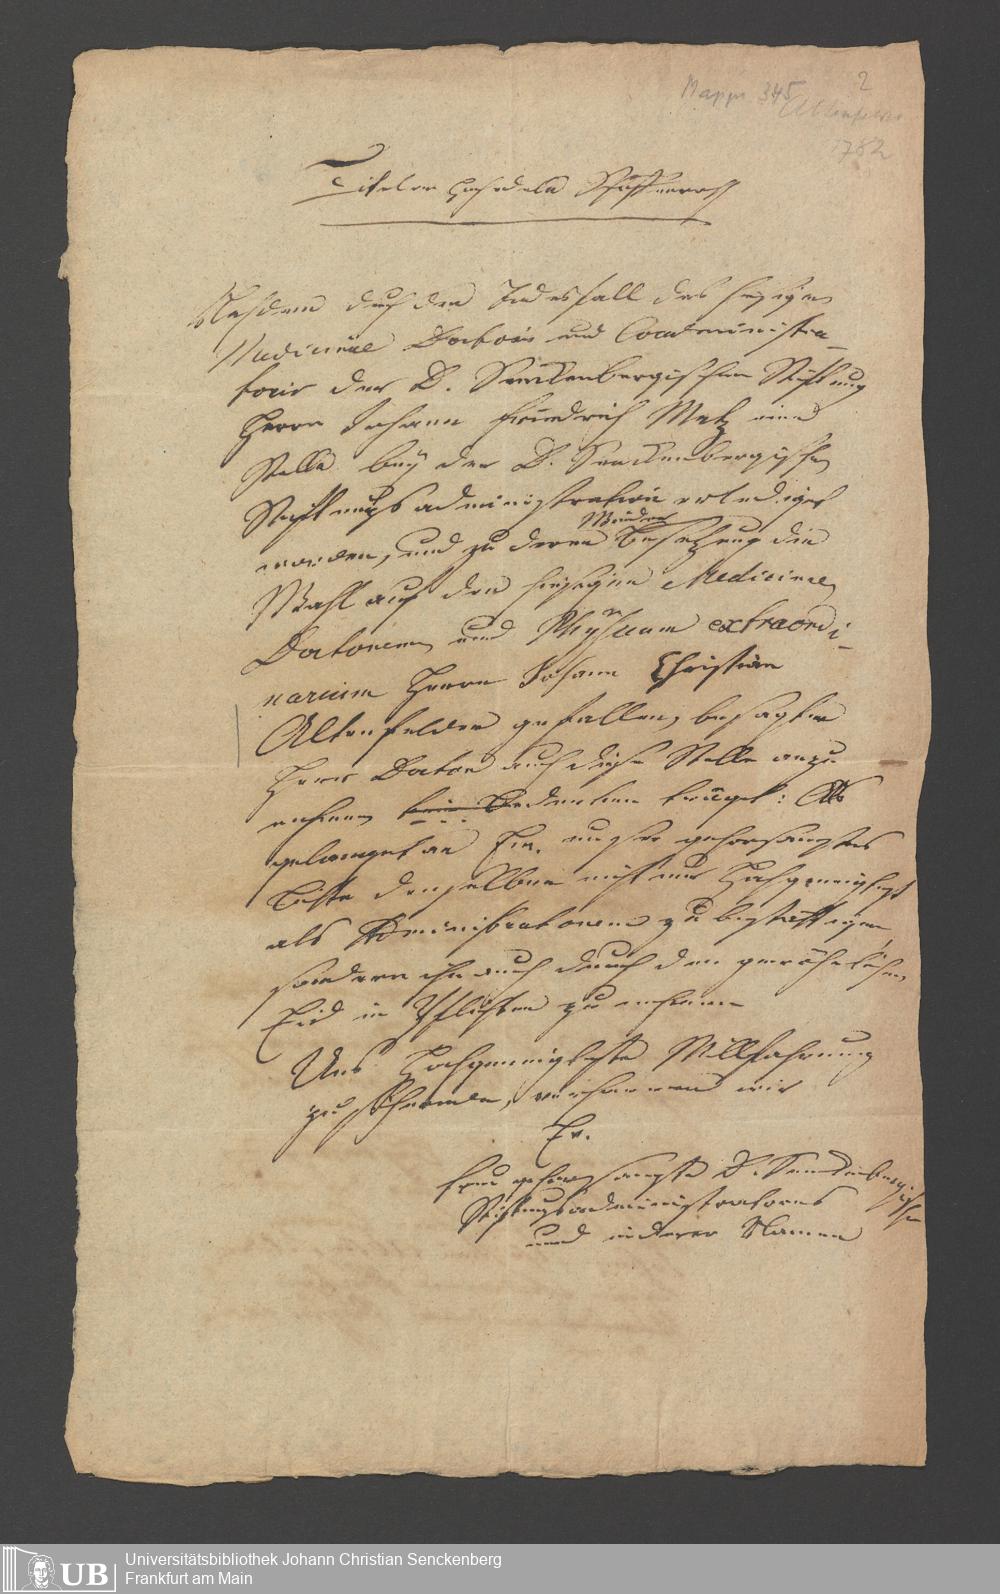 Mappe 345 2
Altenfelder
1782
Titel
Nachdem durch den Todesfall des hiesigen
Medicinae Doctoris und Coadministra-
toris der D. Senckenbergischen Stiftung
Herrn Johann Friedrich Metz eine
Stelle bey der D. Senckenbergischen
Stiftungsadministration erlediget
worden, und zu deren Wieder
Besetzung die
Wahl auf den hiesigen Medicinae
Doctorem und Physicum extraordi-
narium Herrn Johann Christian
Altenfelder gefallen, besagter
Herr Doctor auch diese Stelle anzu
nehmen kein Bedencken träget: Als
gelanget an Ew. unser gehorsamstes
Bitte denselben nicht nur Hochgeneigtest
als Administratorem zu bestättigen,
sondern ihn auch durch den gewöhnlichen
Eid in Pflichten zu nehmen
Uns Hochgeneigteste Willfahrung
zu, verharren wir
Ew.
gehorsamste D. Senckenbergische
Stiftungsadministratores
und in deren Namen
UB Universitätsbibliothek Johann Christian Senckenberg
Frankfurt am Main